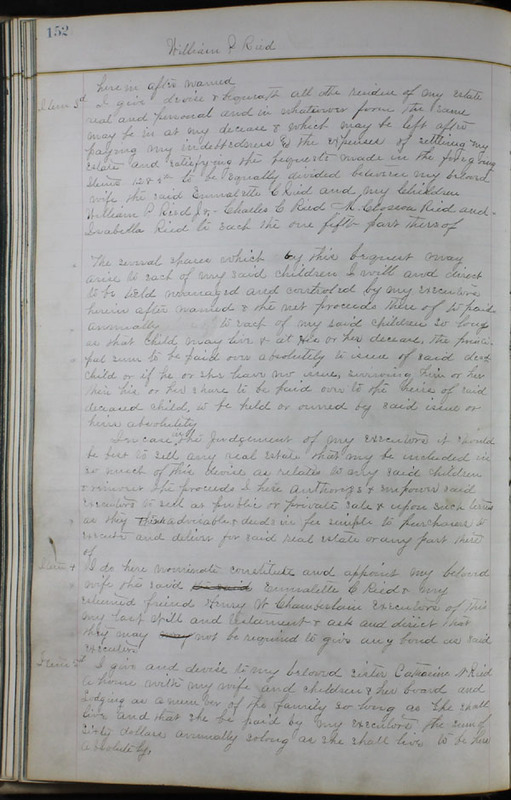 152
William P Ried
herein after named
Item 3d I give devise & bequeath all the residue of my estate
real and personal and in whatever form the same
may be in at my decease & which may be left after
paying my indebtedness & the expenses of settling my
estate and satisfying the bequests made in the foregoing
Items 1 2 & 5th to be equally divided between my beloved
wife the said Emmalette C Ried and my Children
William P. Ried Jr. - Charles C Ried - M. Closson Ried and
Isabella Ried to each the one fifth part thereof
The several shares which by this bequest may
arise to each of my said children I will and direct
to be held managed and controled by my executors
herein after named & the net proceeds there of to paid
annually to each of my said children so long
as that child may live & at his or her decease, the princi
pal sum to be paid over absolutely to issue of said decd
child or if he or she have no issue, surviving him or her
then his or her share to be paid over to the heirs of said
deceased child, to be held or owned by said issue or
heirs absolutely
In case in the Judgement of my executors it should
be best to sell any real estate that may be included in
so much of this devise as relates to my said children
& reinvest the proceeds I here authorize & empower said
executors to sell at public or private sale & upon such terms
as they think advisable & deeds in fee simple to purchasers to
execute and deliver for said real estate or any part there
of
Item 4 I do here nominate constitute and appoint my beloved
wife the said the said Emmalette C Ried & my
esteemed friend Henry W Chamberlain executors of this
my last Will and testament & ask and direct that
they may not be required to give any bond as said
executors
Item 5th I give and devise to my beloved sister Catharine W Ried
a home with my wife and children & her board and
lodging as a member of the family so long as she shall
live and that she be paid by my executors the sum of
Sixty dollars annually solong as she shall live to be hers
absolutely,